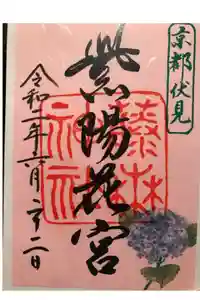 京都伏見
紫陽花宮
藤森神社
令和二年六月二十二日